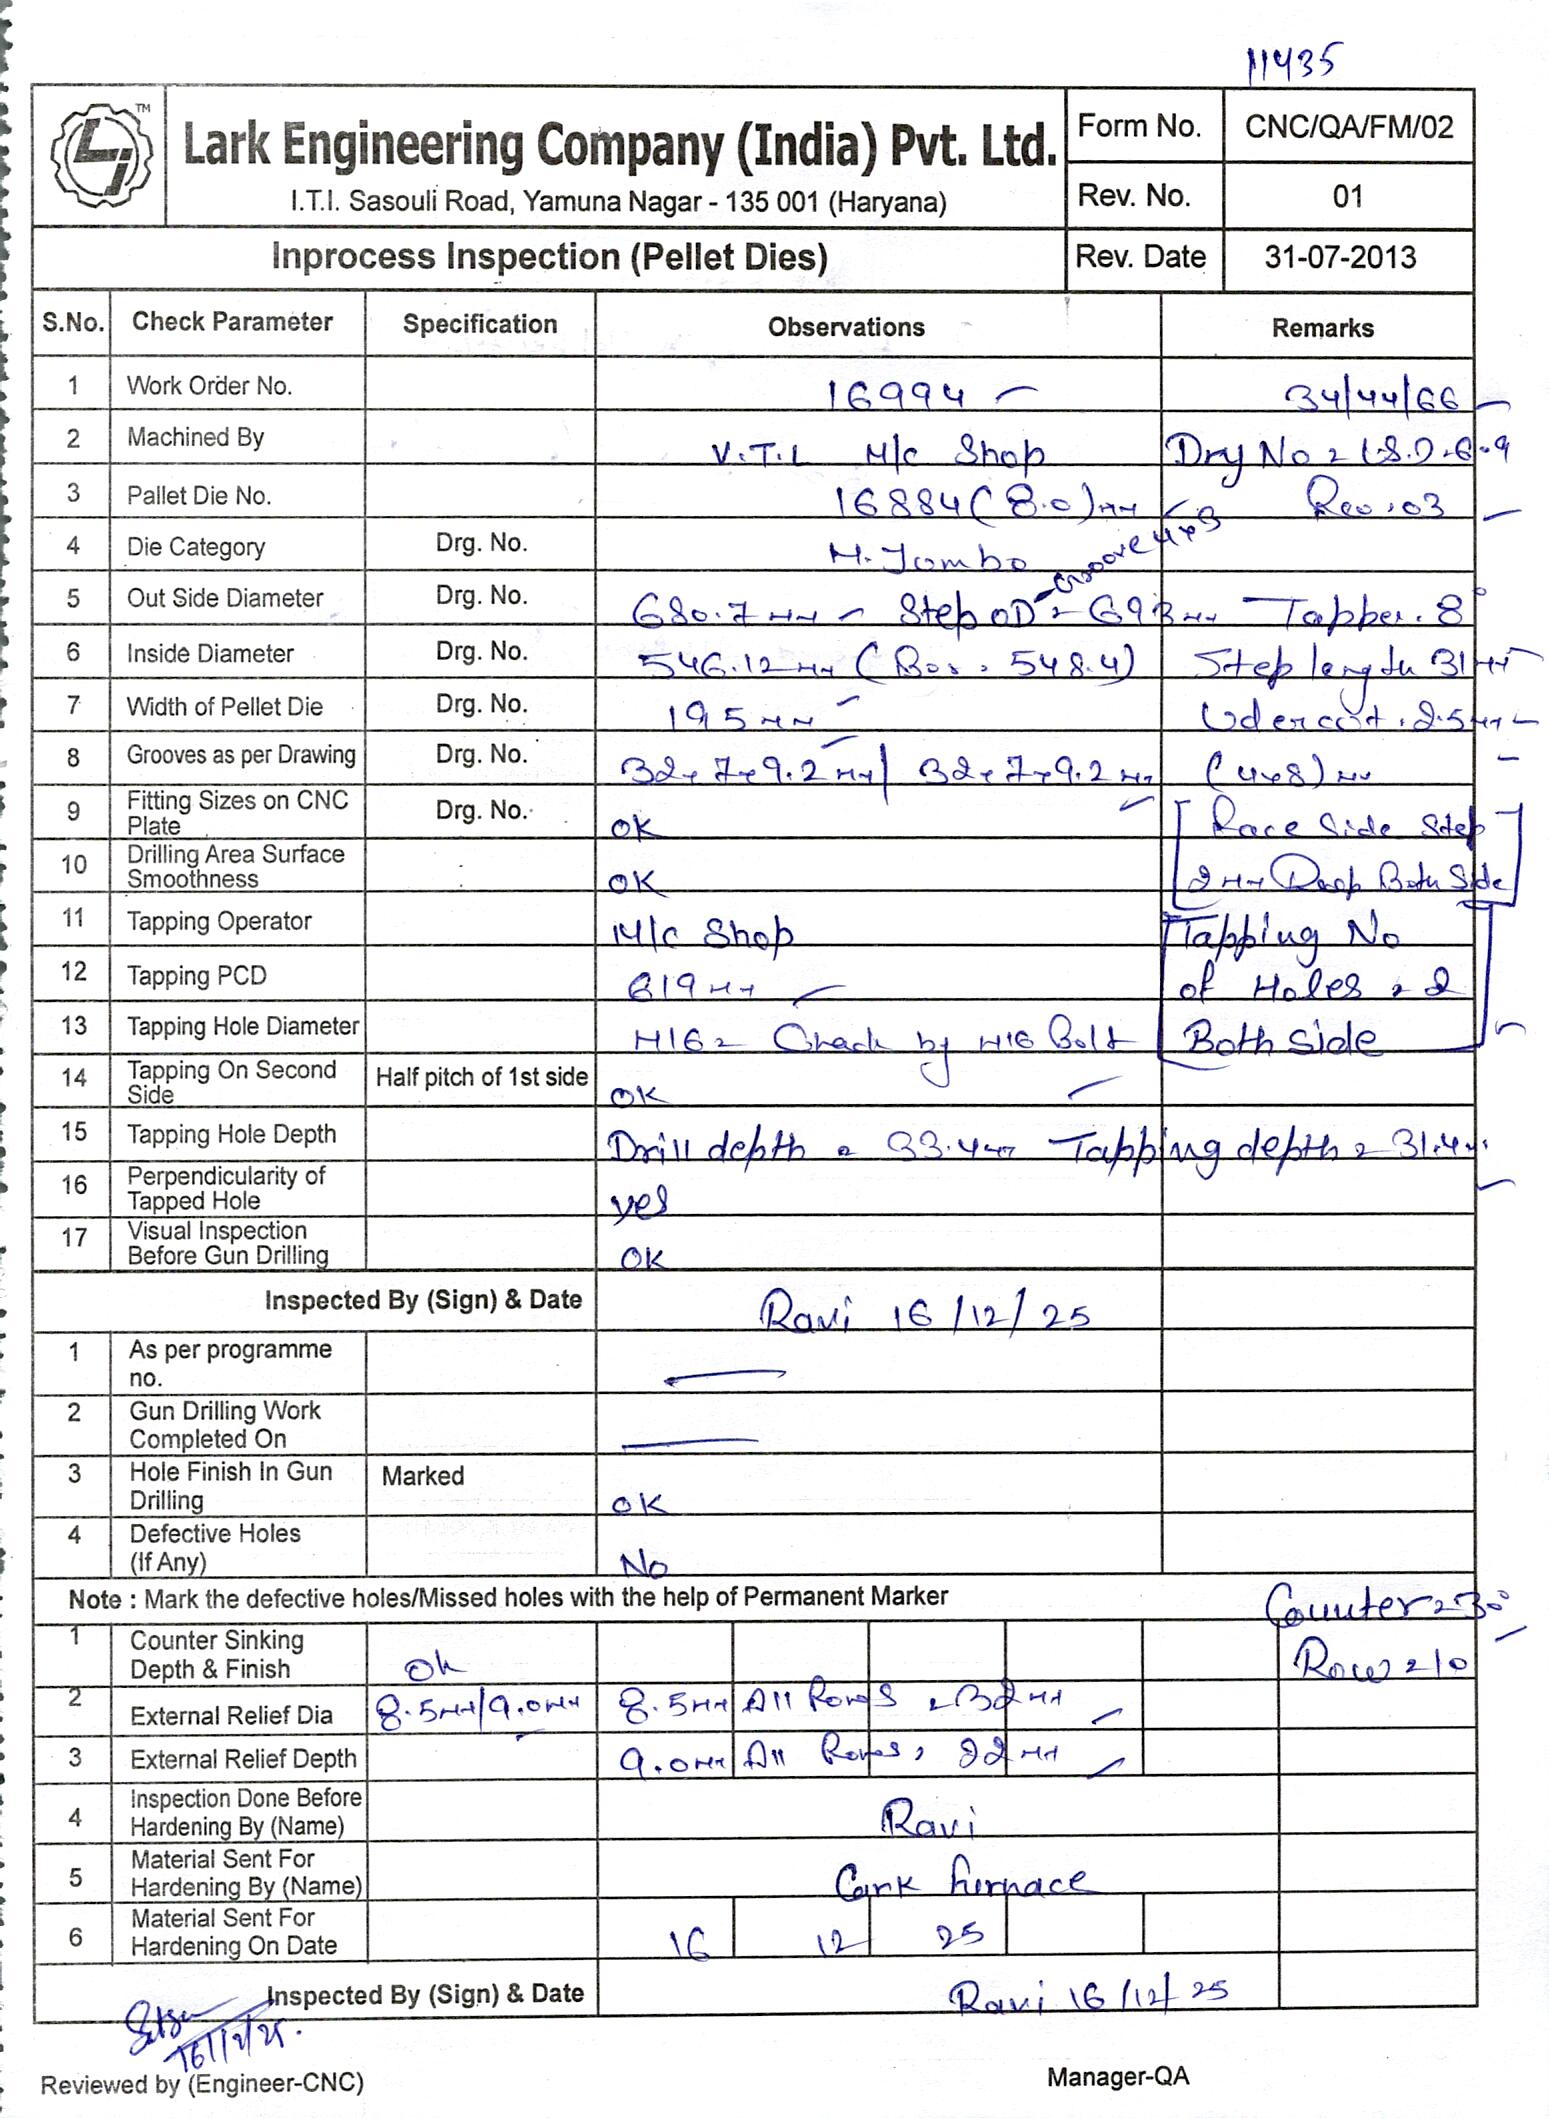 11435
TM
Lark Engineering Company (India) Pvt. Ltd.
I.T.I. Sasouli Road, Yamuna Nagar - 135 001 (Haryana)
Form No. CNC/QA/FM/02
Rev. No. 01
Inprocess Inspection (Pellet Dies) Rev. Date 31-07-2013
S.No. Check Parameter Specification Observations Remarks
1 Work Order No. 16994 34/44/66
2 Machined By V.T.L M/c Shop Drg No
3 Pallet Die No. 16884 (8.0) mm Rev. 03
4 Die Category Drg. No. M. Jombo Groove 4x3
5 Out Side Diameter Drg. No. 680.7 mm Step OD = 693 mm Tapper. 8°
6 Inside Diameter Drg. No. 546.12 mm (Bor. 548.4) Step length 31 mm
7 Width of Pellet Die Drg. No. 195 mm Udercut. 2.5 mm
8 Grooves as per Drawing Drg. No. 32x7x9.2 mm / 32x7x9.2 mm (4x8) mm
9 Fitting Sizes on CNC Plate Drg. No. OK Race Side Step
10 Drilling Area Surface Smoothness OK 2 mm Deep Both Side
11 Tapping Operator M/c Shop Tapping No
12 Tapping PCD 619 mm of Holes = 2
13 Tapping Hole Diameter M16 = Check by M16 Bolt Both Side
14 Tapping On Second Side Half pitch of 1st side OK
15 Tapping Hole Depth Drill depth = 33.4 mm Tapping depth = 31.4 mm
16 Perpendicularity of Tapped Hole yes
17 Visual Inspection Before Gun Drilling OK
Inspected By (Sign) & Date Ravi 16/12/25
1 As per programme no.
2 Gun Drilling Work Completed On
3 Hole Finish In Gun Drilling Marked OK
4 Defective Holes (If Any) No
Note : Mark the defective holes/Missed holes with the help of Permanent Marker Counter = 30°
1 Counter Sinking Depth & Finish Ok Row = 10
2 External Relief Dia 8.5mm/9.0mm 8.5mm All Rows = 32 mm
3 External Relief Depth 9.0mm All Rows = 22 mm
4 Inspection Done Before Hardening By (Name) Ravi
5 Material Sent For Hardening By (Name) furnace
6 Material Sent For Hardening On Date 16 12 25
Inspected By (Sign) & Date Ravi 16/12/25
16/12/25.
Reviewed by (Engineer-CNC) Manager-QA